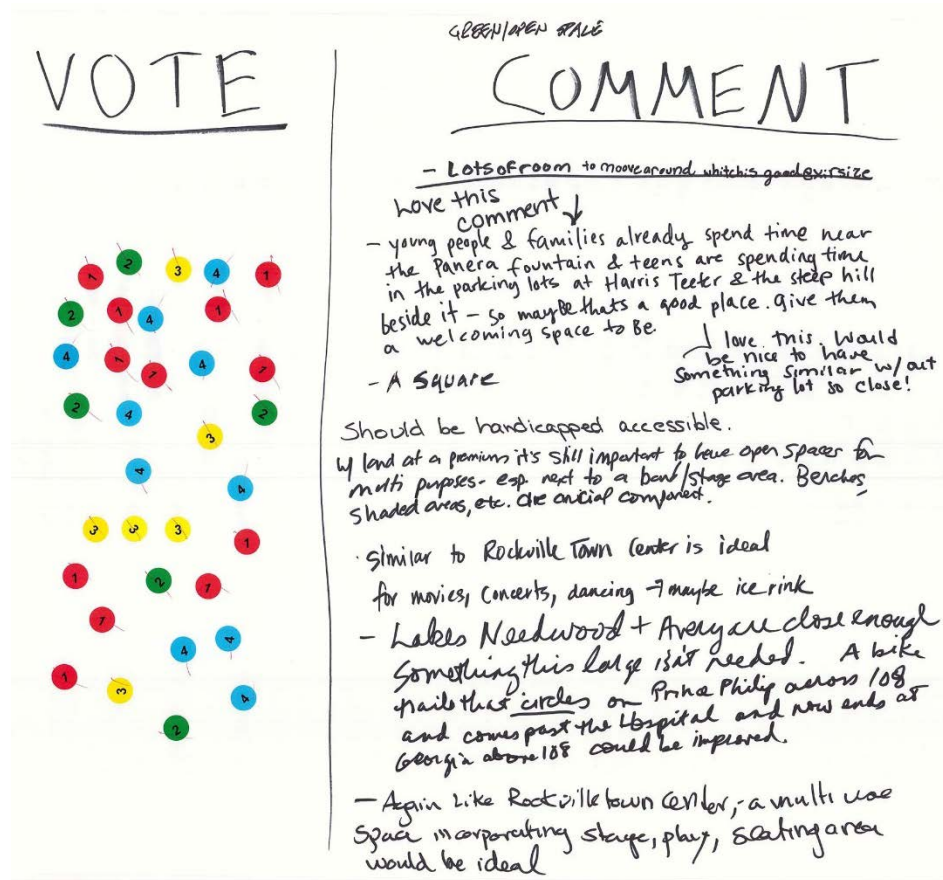 GREEN/OPEN SPACE
VOTE
COMMENT
- Lots of room to moove around whitch is good exirsize
Love this
comment
- young people & families already spend time near
the Panera fountain & teens are spending time
in the parking lots at Harris Teeter & the steep hill
beside it - so maybe thats a good place. Give them
a welcoming space to be
love this. Would
be nice to have
something similar w/out
parking lot so close!
- A Square
Should be handicapped accessible.
w/ land at a premium it's still important to have open spaces for
multi purposes - esp. next to a band/stage area. Benches,
shaded areas, etc. are crucial component.
· Similar to Rockville Town Center is ideal
for movies, concerts, dancing → maybe ice rink
- Lakes Needwood + Avery are close enough
Something this large isn't needed. A bike
trail that circles on Prince Philip across 108
and comes past the Hospital and now ends at
Georgia above 108 could be improved.
- Again Like Rockville town center, - a multi use
space incorporating stage, play, seating area
would be ideal
1 2 3 4 1
2 1 4 1
4 1 1 4 1
2 4 2
3
4 4
3 3 3 1
1 2 1
1
4 4
1 3 4
2